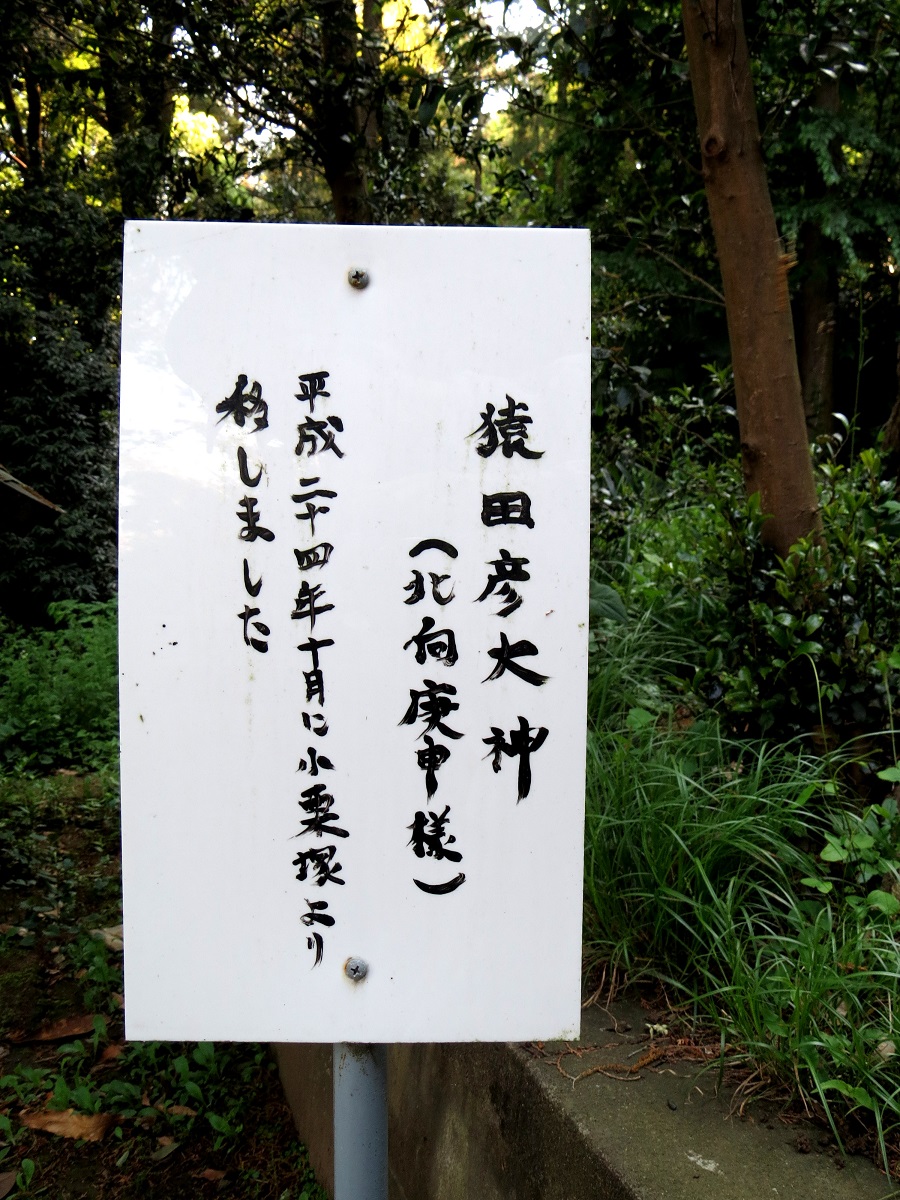 猿田彦大神
（北向庚申様）
平成二十四年十月に小栗塚より
移しました